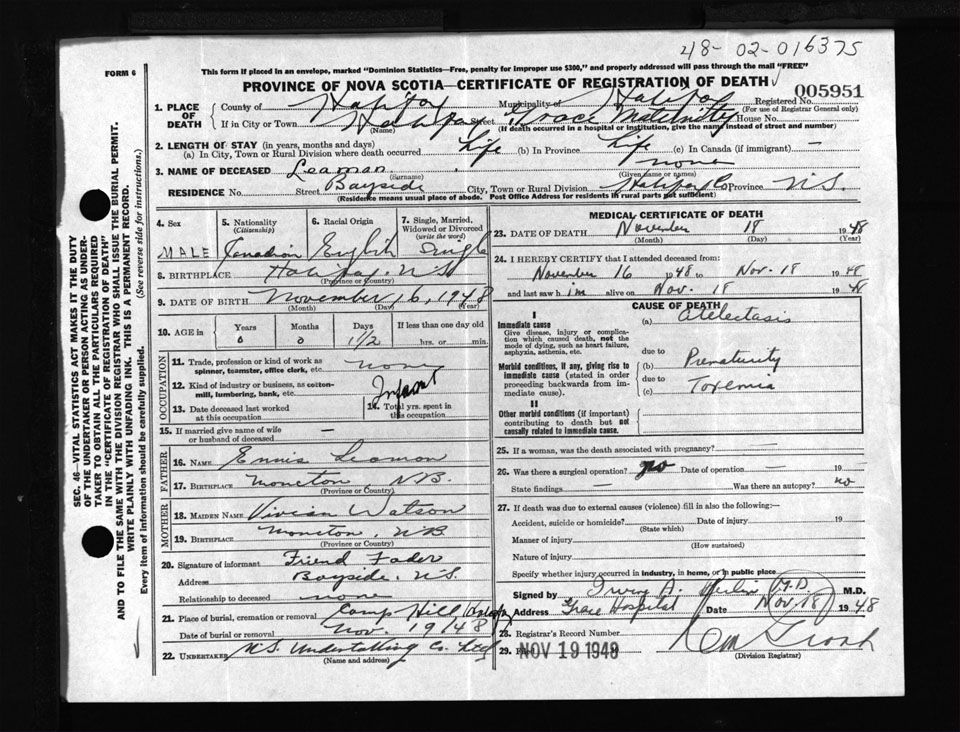 48-02-016375
FORM 6
This form if placed in an envelope, marked "Dominion Statistics—Free, penalty for improper use $300," and properly addressed will pass through the mail "FREE"
PROVINCE OF NOVA SCOTIA—CERTIFICATE OF REGISTRATION OF DEATH
005951
1. PLACE OF DEATH County of Halifax Municipality of Halifax Registered No.
(For use of Registrar General only)
If in City or Town Halifax Street Grace Maternity House No.
(Name) (If death occurred in a hospital or institution, give the name instead of street and number)
2. LENGTH OF STAY (in years, months and days)
(a) In City, Town or Rural Division where death occurred Life (b) In Province Life (c) In Canada (if immigrant) —
3. NAME OF DECEASED Leaman, none
(Surname) (Given name or names)
RESIDENCE No. Street Bayside City, Town or Rural Division Halifax Co Province N.S.
(Residence means usual place of abode. Post Office Address for residents in rural parts not sufficient)
4. Sex MALE
5. Nationality (Citizenship) Canadian
6. Racial Origin English
7. Single, Married, Widowed or Divorced (write the word) Single
8. BIRTHPLACE Halifax, N.S.
(Province or Country)
9. DATE OF BIRTH November 16, 1948
(Month) (Day) (Year)
10. AGE in Years 0 Months 0 Days 1 1/2 If less than one day old hrs. or min.
OCCUPATION
11. Trade, profession or kind of work as spinner, teamster, office clerk, etc. none
12. Kind of industry or business, as cotton-mill, lumbering, bank, etc. Infant
13. Date deceased last worked at this occupation
14. Total yrs. spent in this occupation
15. If married give name of wife or husband of deceased —
FATHER
16. NAME Ennis Leaman
17. BIRTHPLACE Moncton N.B.
(Province or Country)
MOTHER
18. MAIDEN NAME Vivian Watson
19. BIRTHPLACE Moncton, N.B.
(Province or Country)
20. Signature of informant Friend Fader
Address Bayside, N.S.
Relationship to deceased none
21. Place of burial, cremation or removal Camp Hill Halifax
Date of burial or removal Nov. 19/48
22. UNDERTAKER N.S. Undertaking Co. Ltd
(Name and address)
MEDICAL CERTIFICATE OF DEATH
23. DATE OF DEATH November 18 1948
(Month) (Day) (Year)
24. I HEREBY CERTIFY that I attended deceased from:
November 16 1948 to Nov. 18 1948
and last saw him alive on Nov. 18 1948
CAUSE OF DEATH
I
Immediate cause
Give disease, injury or complication which caused death, not the mode of dying, such as heart failure, asphyxia, asthenia, etc.
(a) Atelectasis
due to
Morbid conditions, if any, giving rise to immediate cause (stated in order proceeding backwards from immediate cause).
(b) Prematurity
due to
(c) Toxemia
II
Other morbid conditions (if important) contributing to death but not causally related to immediate cause.
25. If a woman, was the death associated with pregnancy? —
26. Was there a surgical operation? no Date of operation — 19
State findings — Was there an autopsy? no
27. If death was due to external causes (violence) fill in also the following:—
Accident, suicide or homicide? Date of injury 19
(State which)
Manner of injury
(How sustained)
Nature of injury
Specify whether injury occurred in industry, in home, or in public place
Signed by Irwin A. Perlin M.D. M.D.
Address Grace Hospital Date Nov. 18 1948
28. Registrar's Record Number
29. NOV 19 1948
(Division Registrar)
SEC. 46—VITAL STATISTICS ACT MAKES IT THE DUTY OF THE UNDERTAKER OR PERSON ACTING AS UNDERTAKER TO OBTAIN ALL THE PARTICULARS REQUIRED IN THE "CERTIFICATE OF REGISTRATION OF DEATH" AND TO FILE THE SAME WITH THE DIVISION REGISTRAR WHO SHALL ISSUE THE BURIAL PERMIT.
WRITE PLAINLY WITH UNFADING INK. THIS IS A PERMANENT RECORD.
Every item of information should be carefully supplied. (See reverse side for instructions.)